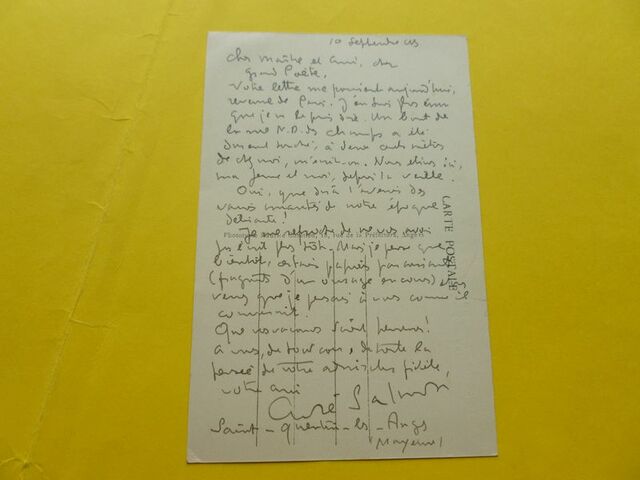 10 Septembre 43
Cher Maître et ami, cher
grand Poète,
Votre lettre me parvient aujourd'hui,
revenue de Paris. J'en suis plus ému
que je ne le puis dire. Un bout de
la rue N.D. des Champs a été
durement touché, à deux cents mètres
de chez moi, m'écrit-on. Nous étions ici,
ma femme et moi, depuis la veille.
Oui, que dira l'avenir des
de notre époque
délirante!
Je me reproche de ne vous avoir
pas écrit plus tôt. Mais je pense que
bientôt, certains papiers paraissant
(fragments d'un ouvrage en cours)
verrez que je pensais à vous comme il
convenait.
Que vos vacances soient heureuses!
A vous, de tout cœur, de toute la
pensée de votre admirateur fidèle,
votre ami
André Salmon
Saint-Quentin-les-Anges
(Mayenne)
CARTE POSTALE
rue de la Préfecture, Angers